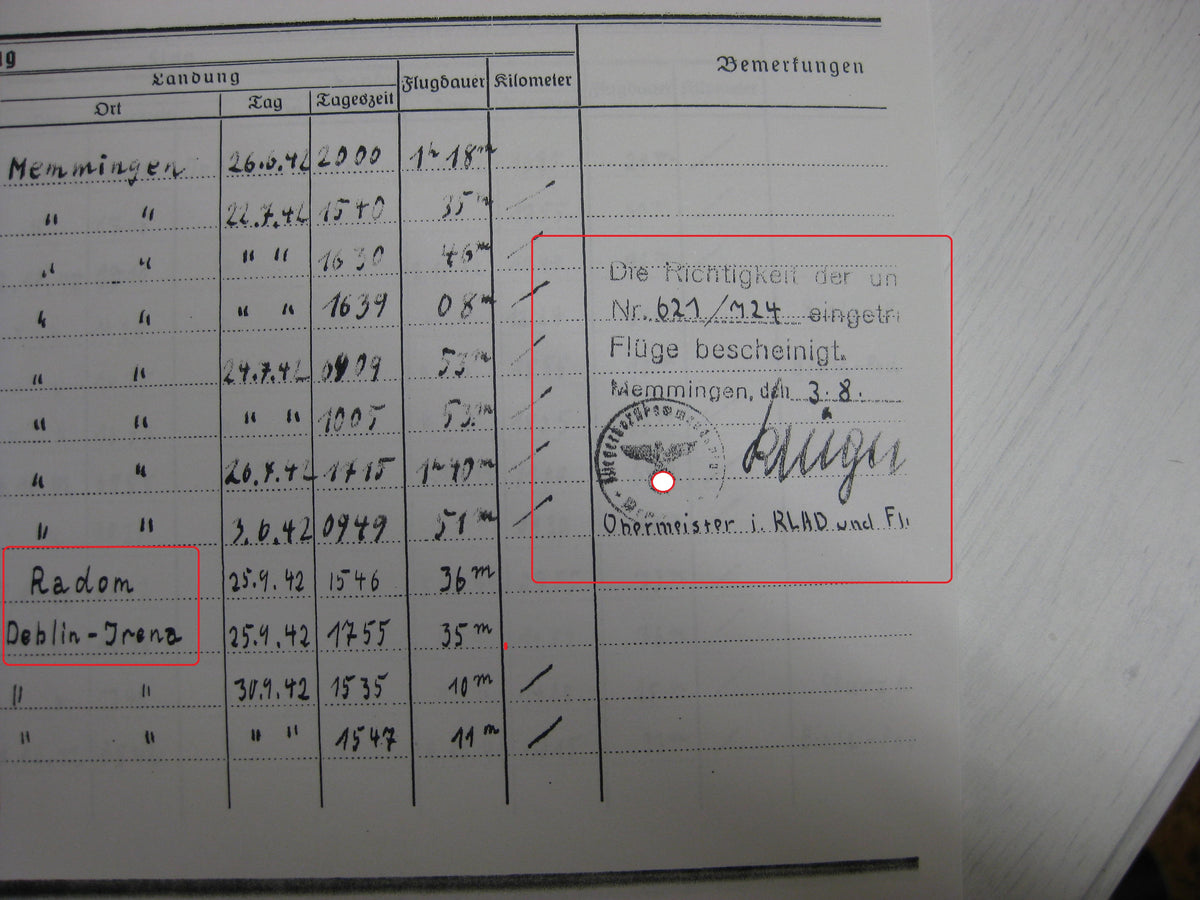 Landung
Flugdauer
Kilometer
Bemerkungen
Ort
Tag
Tageszeit
Memmingen 26.6.42 2000 1h 18m
" " 22.7.42 1540 35m /
" " " " 1630 46m /
" " " " 1639 08m /
" " 24.7.42 0909 53m /
" " " " 1005 53m /
" " 26.7.42 1715 1h 40m /
" " 3.6.42 0949 51m /
Radom 25.9.42 1546 36m
Deblin-Irena 25.9.42 1755 35m
" " 30.9.42 1535 10m /
" " " " 1547 11m /
Die Richtigkeit der un
Nr. 621/724 eingetr
Flüge bescheinigt.
Memmingen, den 3.8.
Obermeister i. RLAD und Fl